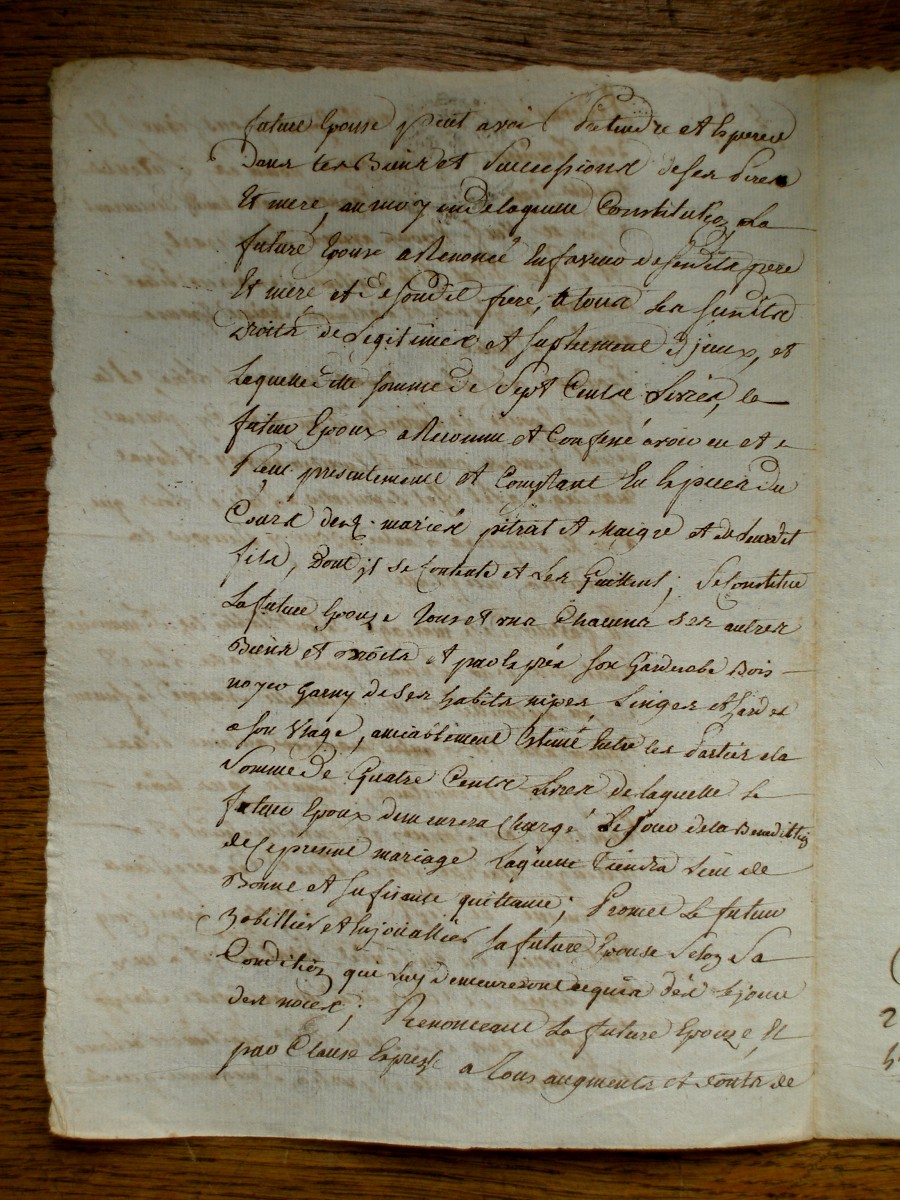 future Epouse peut avoir Pretendre et Esperer
Dans les Biens et Successions de ses Peres
Et mere, au moyen de laquelle Constitution La
future Epouse a Renoncé En faveur de sesdits pere
Et mere et de sondit frere, a tous ses susdits
Droits de Legitimes et suplement d'jceux, et
Laquelle ditte somme de Sept Cents Livres, le
futur Epoux a Reconnu et Confessé avoir eu et
Reçue presentement et Comptant En Especes du
Cours desd. mariés pitrat et Maigre et de leurdit
fils, Dont jl se Contente et Les Quittent; Se Constitue
La future Epouze Tous et uns Chacuns ses autres
Biens et Droits et par Exprés son Garderobe Bois
noyer Garny de ses habits nipes, Linges et hardes
a son Usage, amiablement Estimé Entre les Parties a la
Somme de Quatre Cents Livres de laquelle le
futur Epoux demeurera Chargé Le Jour de la Benediction
de Ce presnt mariage Laquelle Tiendra Lieu de
Bonne et sufisante quittance; Promet Le futur
Habillier et Enjouallier sa future Epouse Selon Sa
Condition qui Luy demeureront acquis dés le jour
des noces; Renonceant La future Epouze Et
par Clause Expresse a Tous augments et donts de